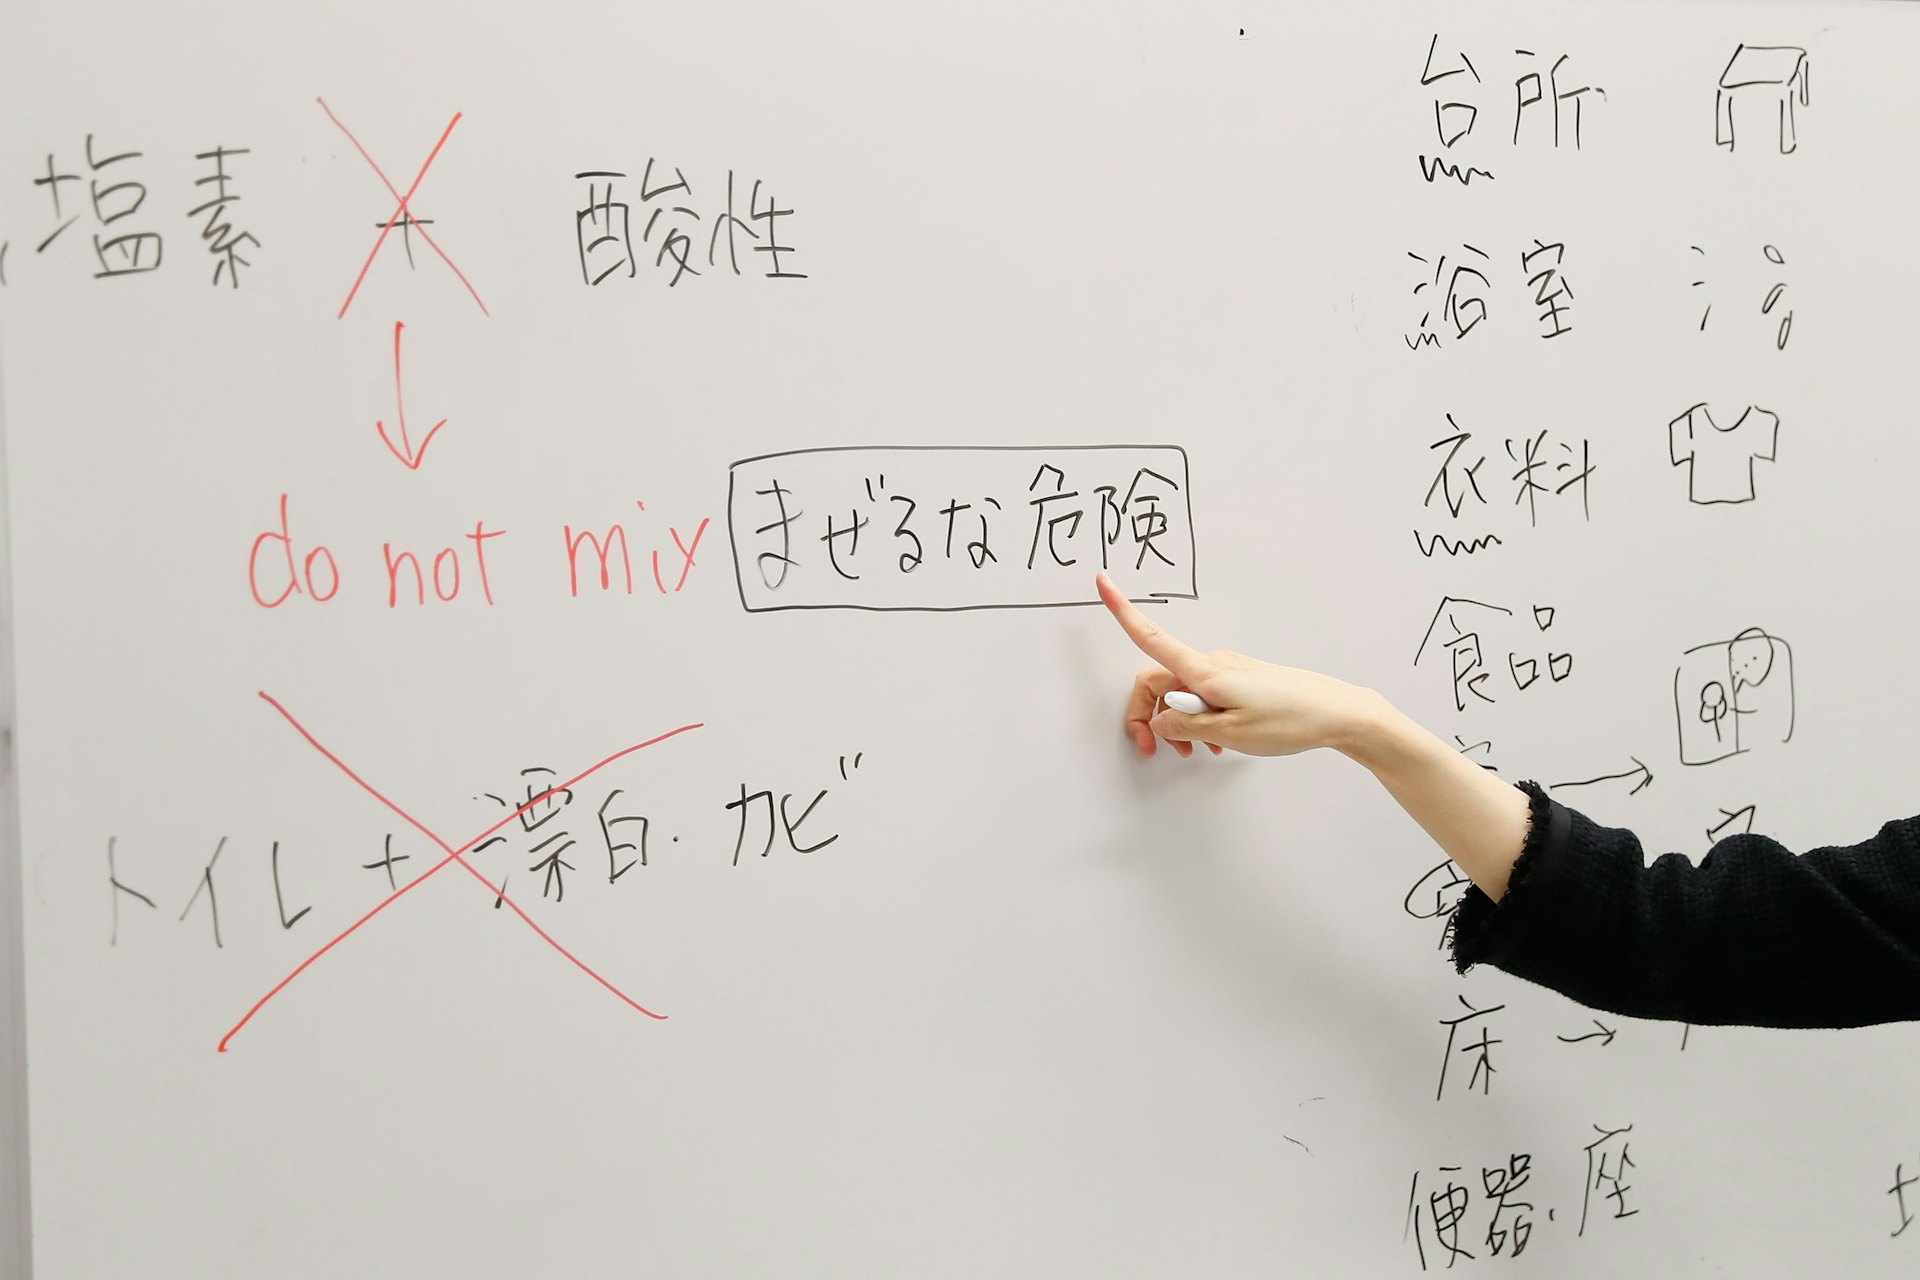 塩素 + 酸性
do not mix まぜるな危険
トイレ + 漂白・カビ
台所
浴室
衣料
食品
床 →
便器・座